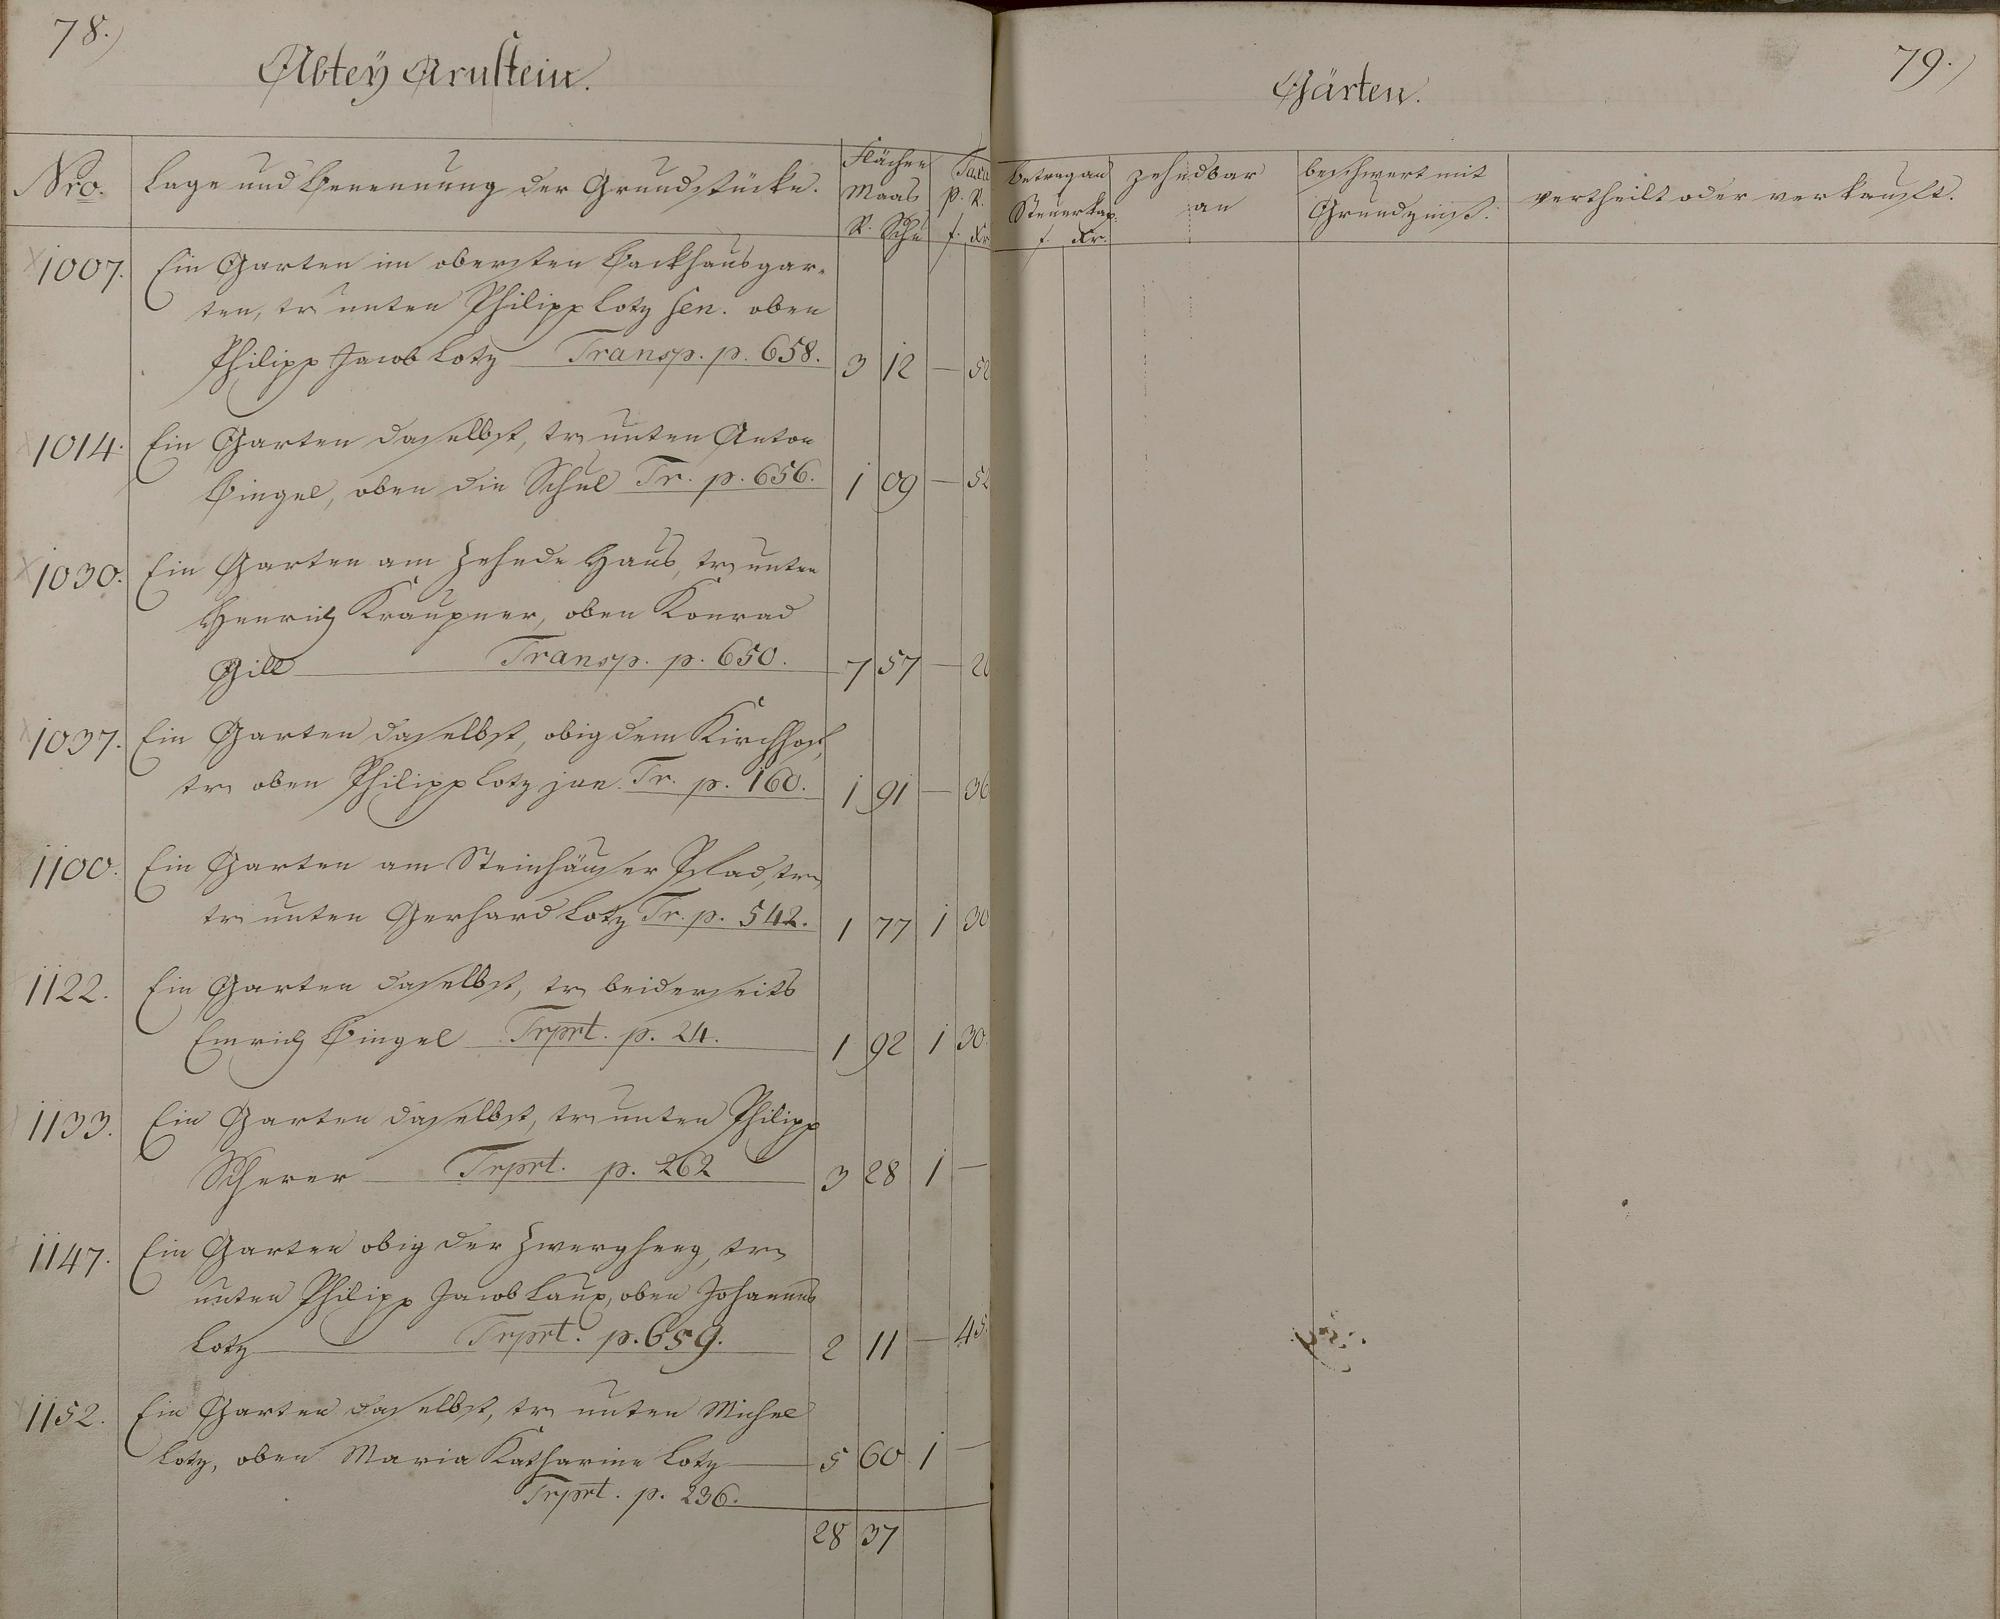 78.)
Abteÿ Arnstein.
Nro.
Lage und Benennung der Grundstücke.
Flächen Maas
R. Schu
Taxa p. R.
f. Kr
1007. Ein Garten im obersten Backhausgar-
ten, tr. unten Philipp Lotz sen. oben
Philipp Jacob Lotz Transp. p. 658. 3 12 —
1014. Ein Garten daselbst, tr. unten Anton
Bingel, oben die Schul Tr. p. 656. 1 09 — 52
1030. Ein Garten am Zehnde Haus, tr. unten
Henrich Kraupner, oben Konrad
Gill Transp. p. 650. 7 57 —
1037. Ein Garten daselbst, obig dem Kirchhof,
tr. oben Philipp Lotz jun. Tr. p. 160. 1 91 — 36
1100. Ein Garten am Steinhäuser Pfad, tr.
tr. unten Gerhard Lotz Tr. p. 542. 1 77 1 30
1122. Ein Garten daselbst, tr. beiderseits
Emrich Bingel Trprt. p. 24. 1 92 1 30.
1133. Ein Garten daselbst, tr. unten Philipp
Scherer Trprt. p. 262 3 28 1 —
1147. Ein Garten obig der Zwergheeg, tr.
unten Philipp Jacob Laux, oben Johannes
Lotz Trprt. p. 659. 2 11 — 45.
1152. Ein Garten daselbst, tr. unten Michel
Lotz, oben Maria Katharine Lotz 5 60 1 —
Trprt. p. 236.
28 37
79.)
Gärten.
Betrag an Steuerkap.
f. Kr.
zehndbar an
beschwert mit Grundzinß.
vertheilt oder verkauft.